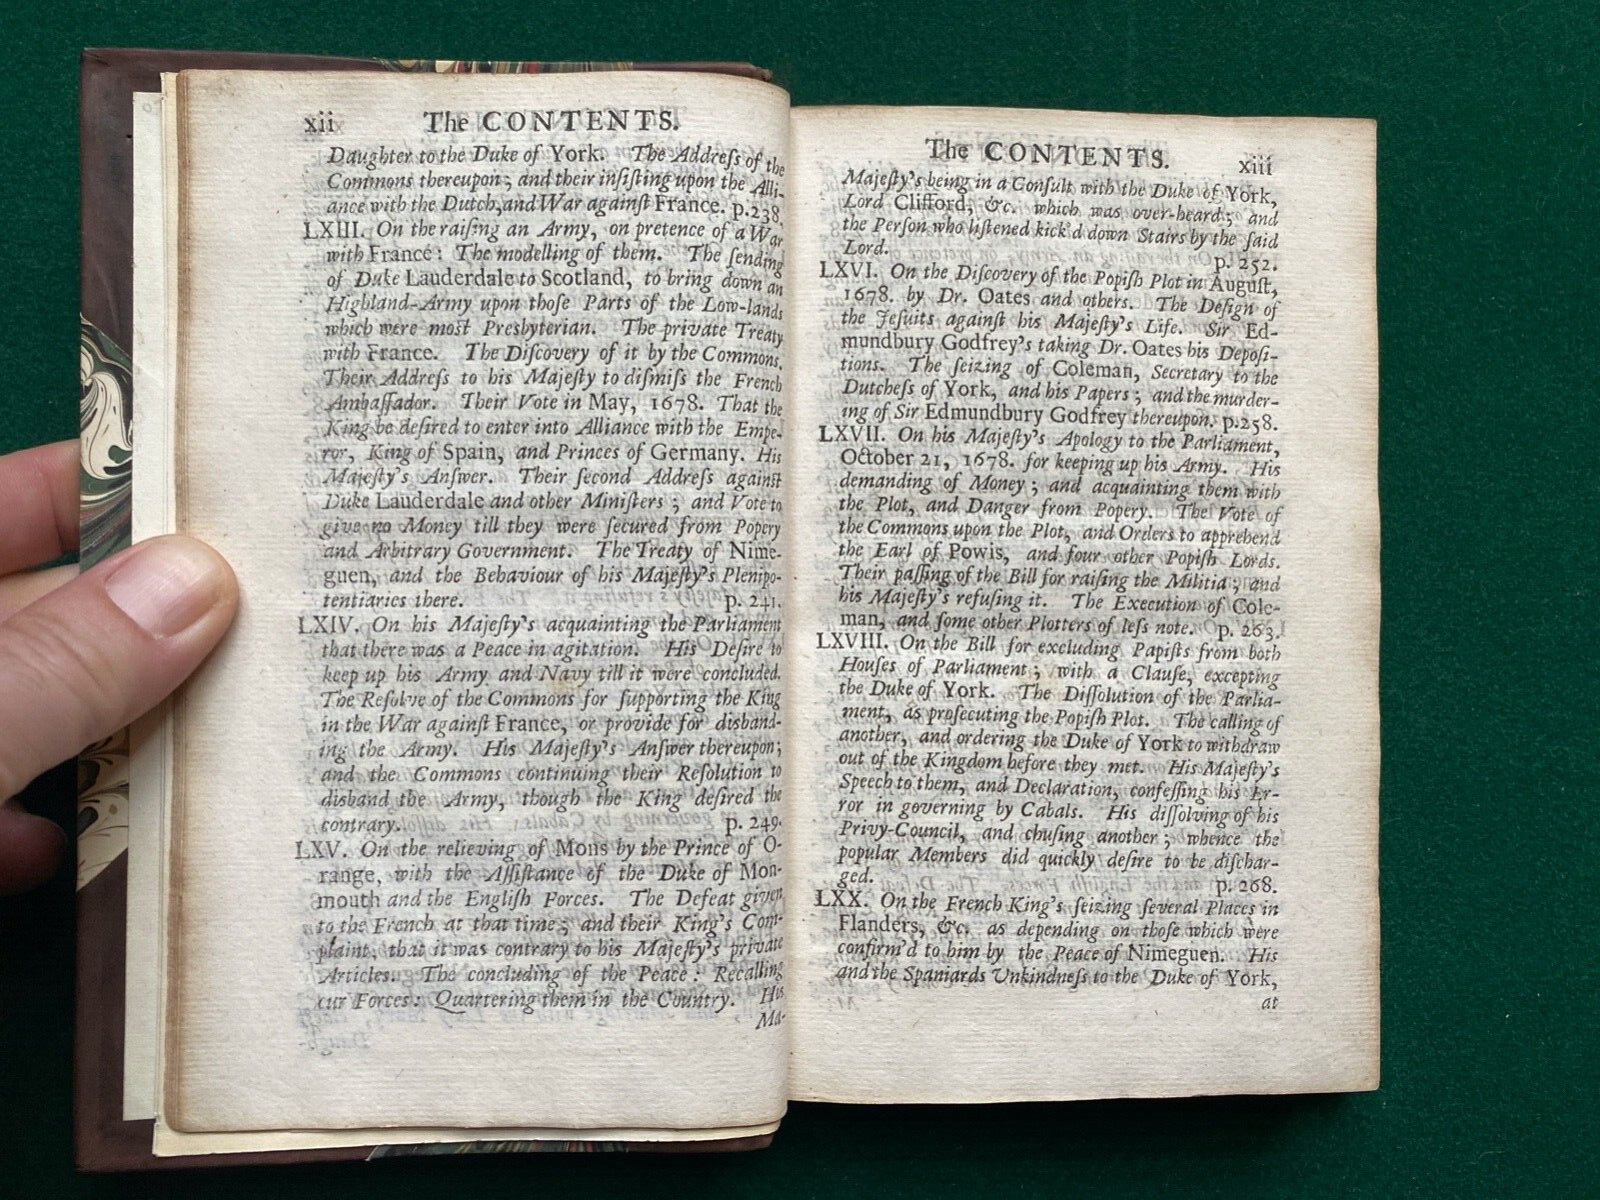 xii The CONTENTS.
Daughter to the Duke of York. The Addreſs of the
Commons thereupon; and their inſiſting upon the Alli-
ance with the Dutch, and War againſt France. p. 238.
LXIII. On the raiſing an Army, on pretence of a War
with France: The modelling of them. The ſending
of Duke Lauderdale to Scotland, to bring down an
Highland-Army upon thoſe Parts of the Low-lands
which were moſt Presbyterian. The private Treaty
with France. The Diſcovery of it by the Commons.
Their Addreſs to his Majeſty to diſmiſs the French
Ambaſſador. Their Vote in May, 1678. That the
King be deſired to enter into Alliance with the Empe-
ror, King of Spain, and Princes of Germany. His
Majeſty's Anſwer. Their ſecond Addreſs againſt
Duke Lauderdale and other Miniſters; and Vote to
give no Money till they were ſecured from Popery
and Arbitrary Government. The Treaty of Nime-
guen, and the Behaviour of his Majeſty's Plenipo-
tentiaries there. p. 241.
LXIV. On his Majeſty's acquainting the Parliament
that there was a Peace in agitation. His Deſire to
keep up his Army and Navy till it were concluded.
The Reſolve of the Commons for ſupporting the King
in the War againſt France, or provide for disband-
ing the Army. His Majeſty's Anſwer thereupon;
and the Commons continuing their Reſolution to
disband the Army, though the King deſired the
contrary. p. 249.
LXV. On the relieving of Mons by the Prince of O-
range, with the Aſſiſtance of the Duke of Mon-
mouth and the Engliſh Forces. The Defeat given
to the French at that time; and their King's Com-
plaint, that it was contrary to his Majeſty's private
Articles. The concluding of the Peace: Recalling
cur Forces: Quartering them in the Country. His
Ma-
The CONTENTS. xiii
Majeſty's being in a Conſult with the Duke of York,
Lord Clifford, &c. which was over-heard; and
the Perſon who liſtened kick'd down Stairs by the ſaid
Lord. p. 252.
LXVI. On the Diſcovery of the Popiſh Plot in Auguſt,
1678. by Dr. Oates and others. The Deſign of
the Jeſuits againſt his Majeſty's Life. Sir Ed-
mundbury Godfrey's taking Dr. Oates his Depoſi-
tions. The ſeizing of Coleman, Secretary to the
Dutcheſs of York, and his Papers; and the murder-
ing of Sir Edmundbury Godfrey thereupon. p. 258.
LXVII. On his Majeſty's Apology to the Parliament,
October 21, 1678. for keeping up his Army. His
demanding of Money; and acquainting them with
the Plot, and Danger from Popery. The Vote of
the Commons upon the Plot, and Orders to apprehend
the Earl of Powis, and four other Popiſh Lords.
Their paſſing of the Bill for raiſing the Militia; and
his Majeſty's refuſing it. The Execution of Cole-
man, and ſome other Plotters of leſs note. p. 263.
LXVIII. On the Bill for excluding Papiſts from both
Houſes of Parliament; with a Clauſe, excepting
the Duke of York. The Diſſolution of the Parlia-
ment, as proſecuting the Popiſh Plot. The calling of
another, and ordering the Duke of York to withdraw
out of the Kingdom before they met. His Majeſty's
Speech to them, and Declaration, confeſſing his Er-
ror in governing by Cabals. His diſſolving of his
Privy-Council, and chuſing another; whence the
popular Members did quickly deſire to be diſchar-
ged. p. 268.
LXX. On the French King's ſeizing ſeveral Places in
Flanders, &c. as depending on thoſe which were
confirm'd to him by the Peace of Nimeguen. His
and the Spaniards Unkindneſs to the Duke of York,
at